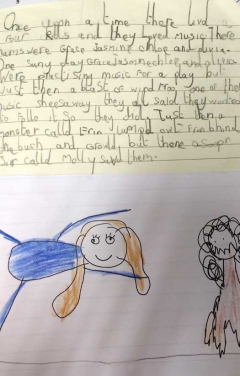 Once upon a time there livd a
four kids and they loved music There
nams were Grace Jasmine Chloe and olivia.
One suny day Grace Jasmine chloe and olivia
were practising music for a play but
Just then a blast of wind Mroo one of there
music sheesaway they all said they wanted
to follo it So they did. Just then a
monster called Erin Jumped out from bhind
the bush and Growld, but there a
called Molly them.